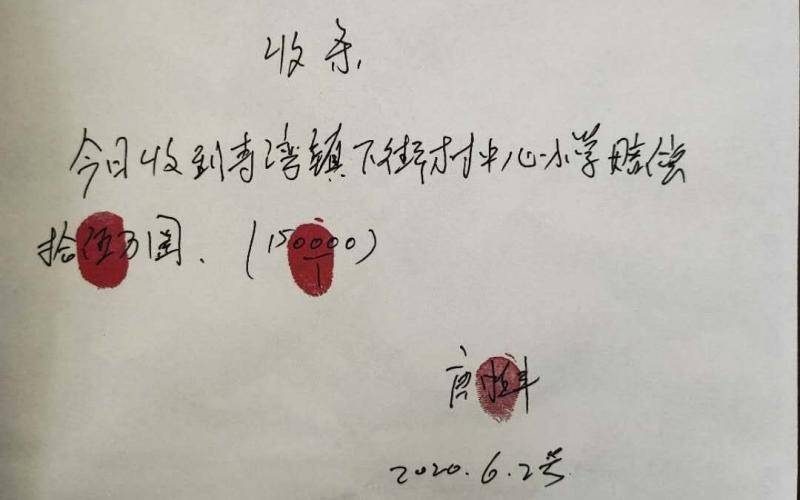 收条
今日收到青湾镇下街村中心小学赔偿
拾伍万圆、(150000)
唐恒丰
2020.6.2号